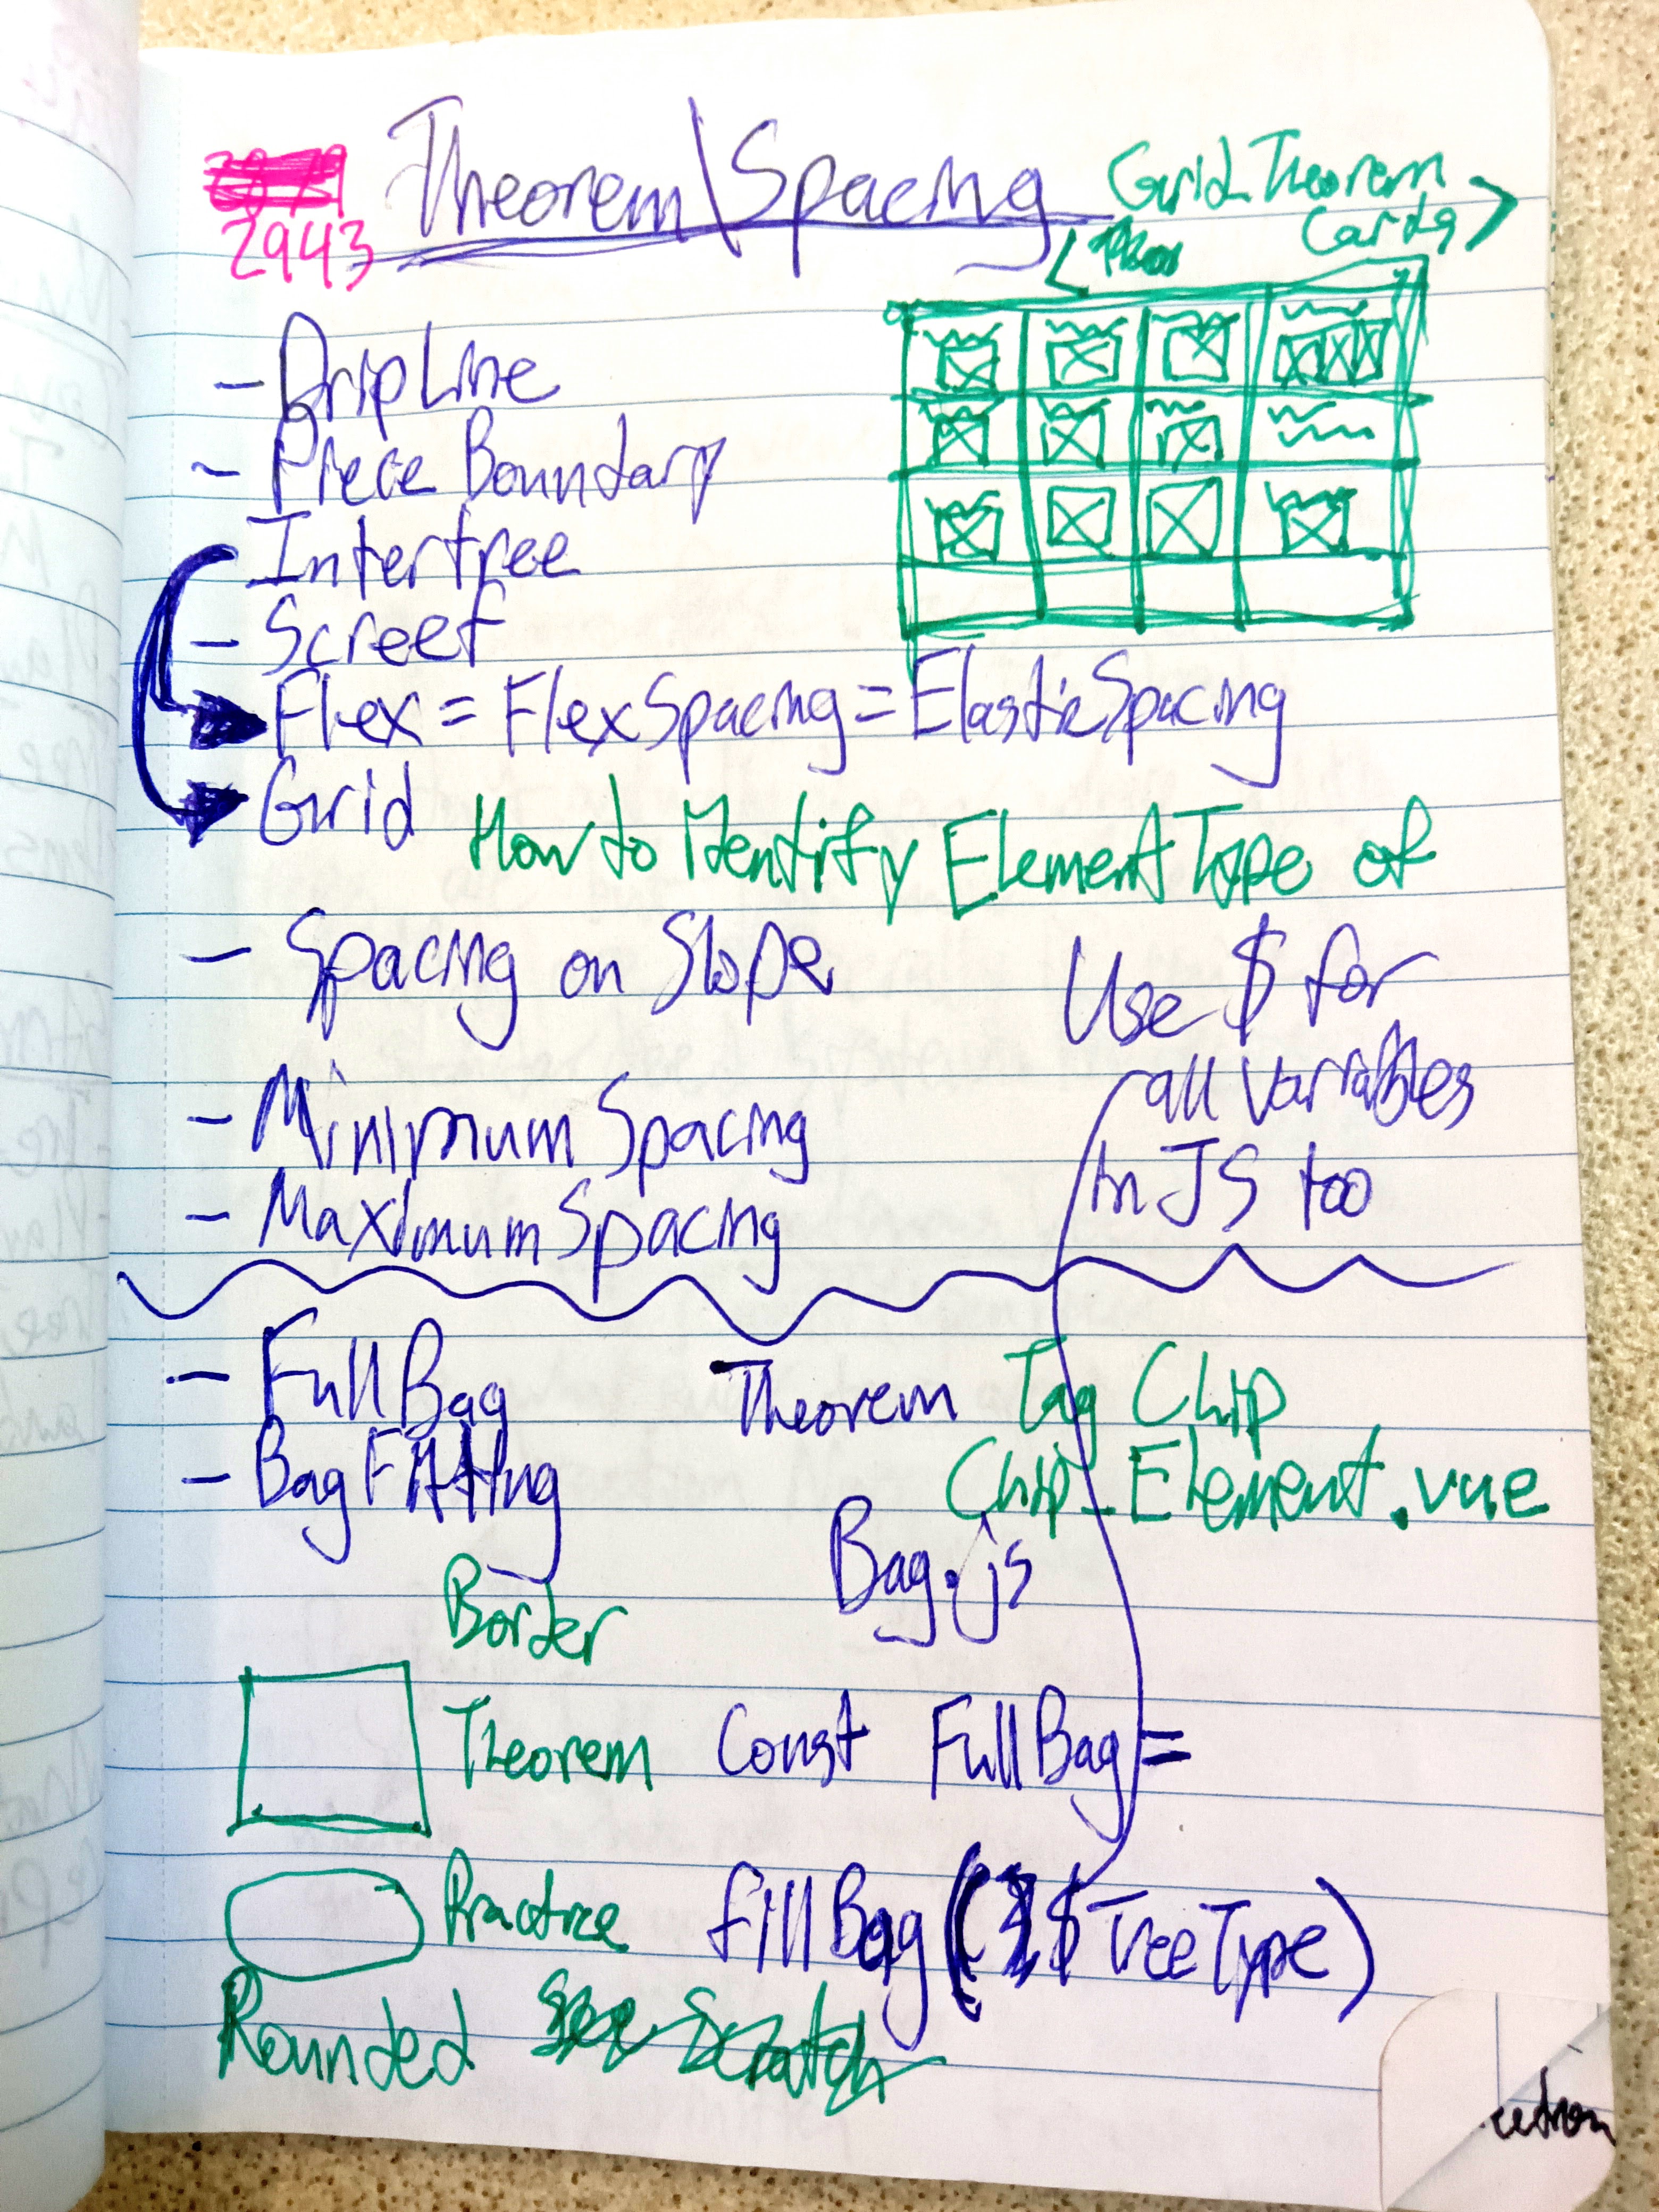 2943
Theorem\Spacing
Grid Theorem
Cards
- DripLine
- Piece Boundary
Intertree
- Screef
Flex = FlexSpacing = ElasticSpacing
Grid
How to Identify Element Type of
- Spacing on Slope
Use $ for
all variables
in JS too
- Minimum Spacing
- Maximum Spacing
- FullBag
- BagFitting
Theorem Tag Chip
Chip_Element.vue
Bag.js
Border
Theorem
Const FullBag =
Practice
fillBag($TreeType)
Rounded